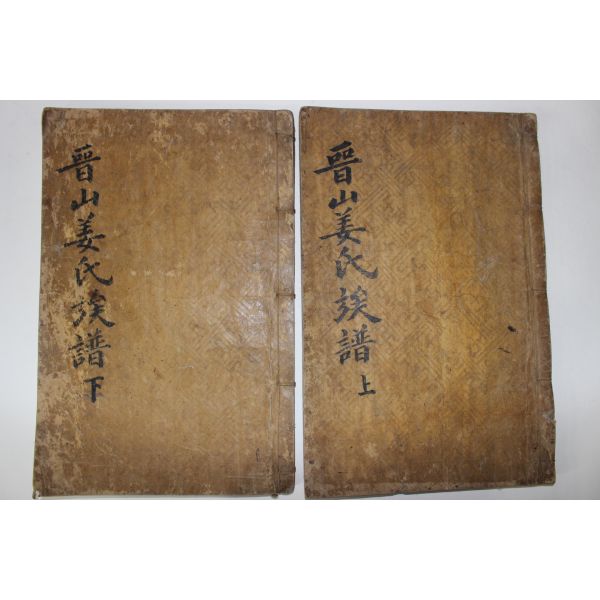 晉山姜氏族譜 下
晉山姜氏族譜 上